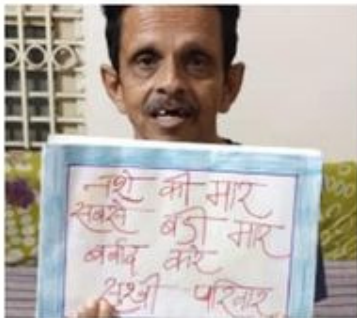 नशे की मार
सबसे बडी मार
बर्बाद करे
सुखी परिवार